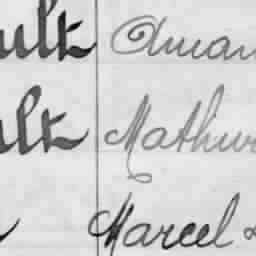 ult Aman
ult Mathur
Marcel